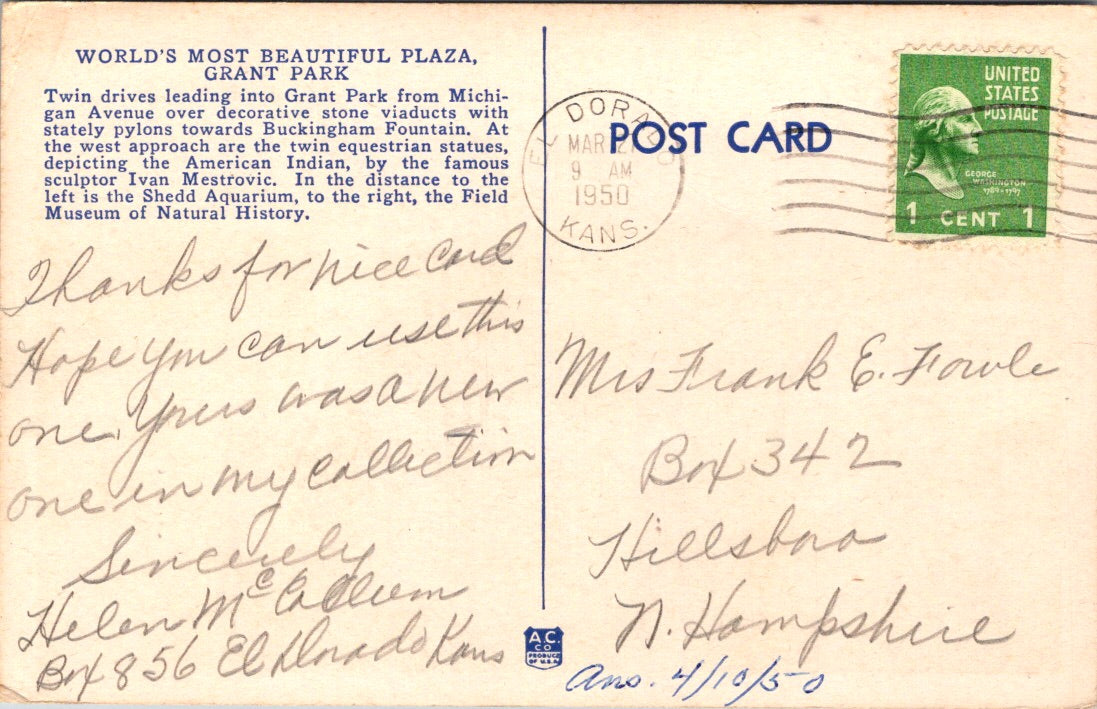 WORLD'S MOST BEAUTIFUL PLAZA,
GRANT PARK
Twin drives leading into Grant Park from Michi-
gan Avenue over decorative stone viaducts with
stately pylons towards Buckingham Fountain. At
the west approach are the twin equestrian statues,
depicting the American Indian, by the famous
sculptor Ivan Mestrovic. In the distance to the
left is the Shedd Aquarium, to the right, the Field
Museum of Natural History.
Thanks for nice card
Hope you can use this
one. Yours was a new
one in my collection
Sincerely
Helen McCollum
Box 856 El Dorado Kans
EL DORADO
MAR
9 AM
1950
KANS.
POST CARD
UNITED
STATES
POSTAGE
GEORGE
WASHINGTON
1789-1797
1 CENT 1
Mrs Frank E. Fowle
Box 342
Hillsboro
N. Hampshire
Ans. 4/10/50
A.C.
CO
PRODUCT
OF U.S.A.